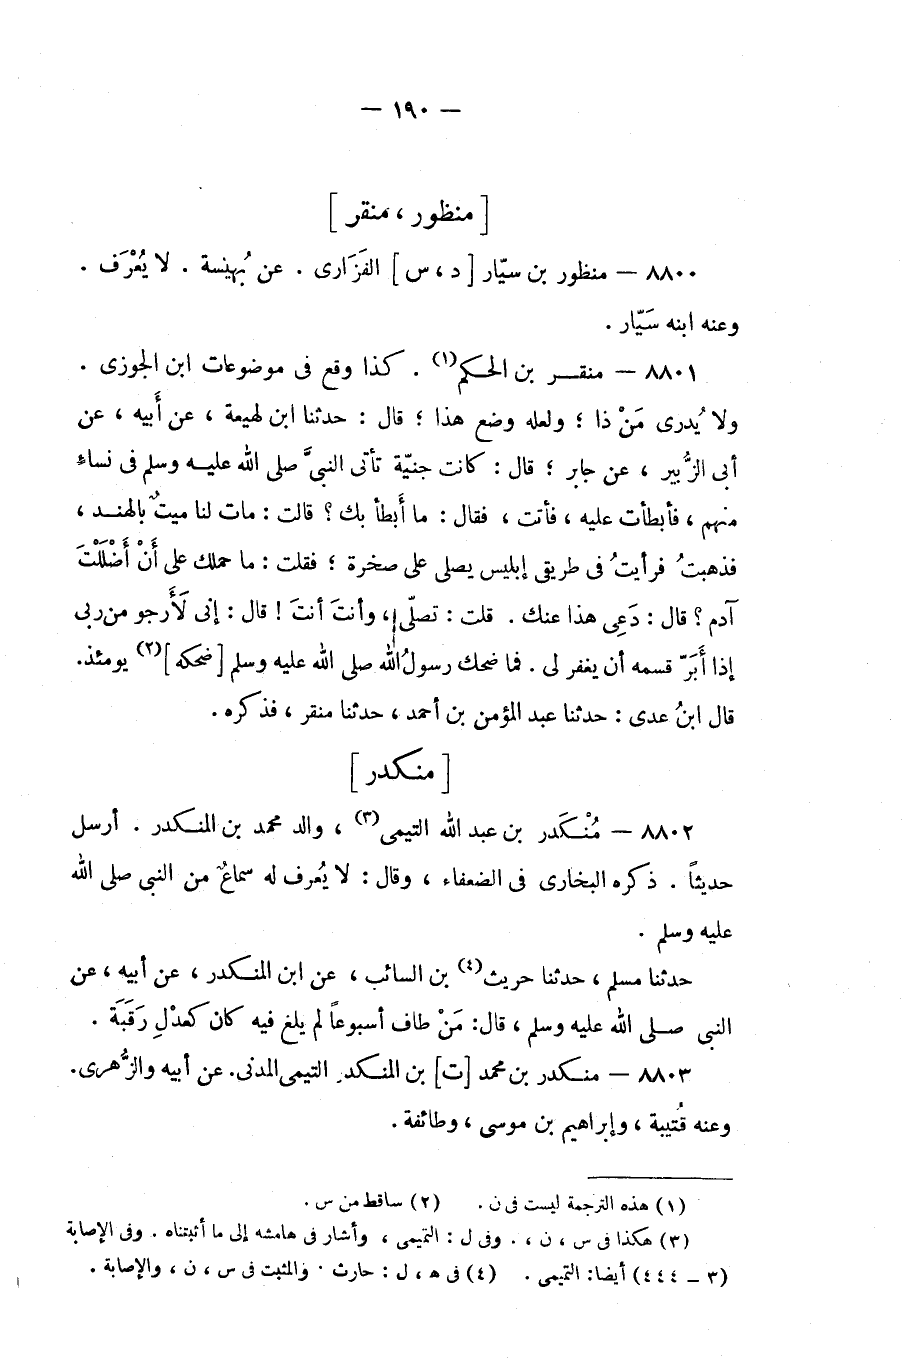 — ١٩٠ —
[ منظور ، منقر ]
٨٨٠٠ — منظور بن سيّار [ د ، س ] الفَزَارى . عن بُهيْسة . لا يُعْرَف .
وعنه ابنه سَيّار .
٨٨٠١ — منقر بن الحكم(١) . كذا وقع فى موضوعات ابن الجوزى .
ولا يُدرى مَنْ ذا ؛ ولعله وضع هذا ؛ قال : حدثنا ابن لهيعة ، عن أَبيه ، عن
أبى الزُّبير ، عن جابر ؛ قال : كانت جنيّة تأتى النبىَّ صلى الله عليه وسلم فى نساءٍ
منهم ، فأبطأت عليه ، فأتت ، فقال : ما أَبطأ بك ؟ قالت : مات لنا ميتٌ بالهند ،
فذهبتُ فرأيتُ فى طريقى إبليس يصلى على صخرة ؛ فقلت : ما حملك على أَنْ أَضْلَلْتَ
آدم ؟ قال : دَعِى هذا عنك . قلت : تصلّى ، وأنتَ أنتَ ! قال : إنى لَأَرجو من ربى
إذا أَبَرّ قسمه أن يغفر لى . فما ضحك رسولُ الله صلى الله عليه وسلم [ ضحكه ](٢) يومئذ.
قال ابنُ عدى : حدثنا عبد المؤمن بن أحمد ، حدثنا منقر ، فذكره .
[ منكدر ]
٨٨٠٢ — مُنْكَدر بن عبد الله التيمى(٣) ، والد محمد بن المنكدر . أرسل
حديثاً . ذكره البخارى فى الضعفاء ، وقال : لا يُعرف له سماعٌ من النبى صلى الله
عليه وسلم .
حدثنا مسلم ، حدثنا حريث(٤) بن السائب ، عن ابن المنكدر ، عن أبيه ، عن
النبى صلى الله عليه وسلم ، قال: مَنْ طاف أسبوعاً لم يلغ فيه كان كعدْلِ رَقَبَة .
٨٨٠٣ — منكدر بن محمد [ت] بن المنكدر التيمى المدنى. عن أبيه والزُّهرى.
وعنه قُتيبة ، وإبراهيم بن موسى ، وطائفة .
(١) هذه الترجمة ليست فى ن . (٢) ساقط من س .
(٣) هكذا فى س ، ن ، . وفى ل : التميمى ، وأشار فى هامشه إلى ما أثبتناه . وفى الإصابة
(٣ – ٤٤٤) أيضا: التميمى . (٤) فى ه ، ل : حارث . والمثبت فى س ، ن ، والإصابة .